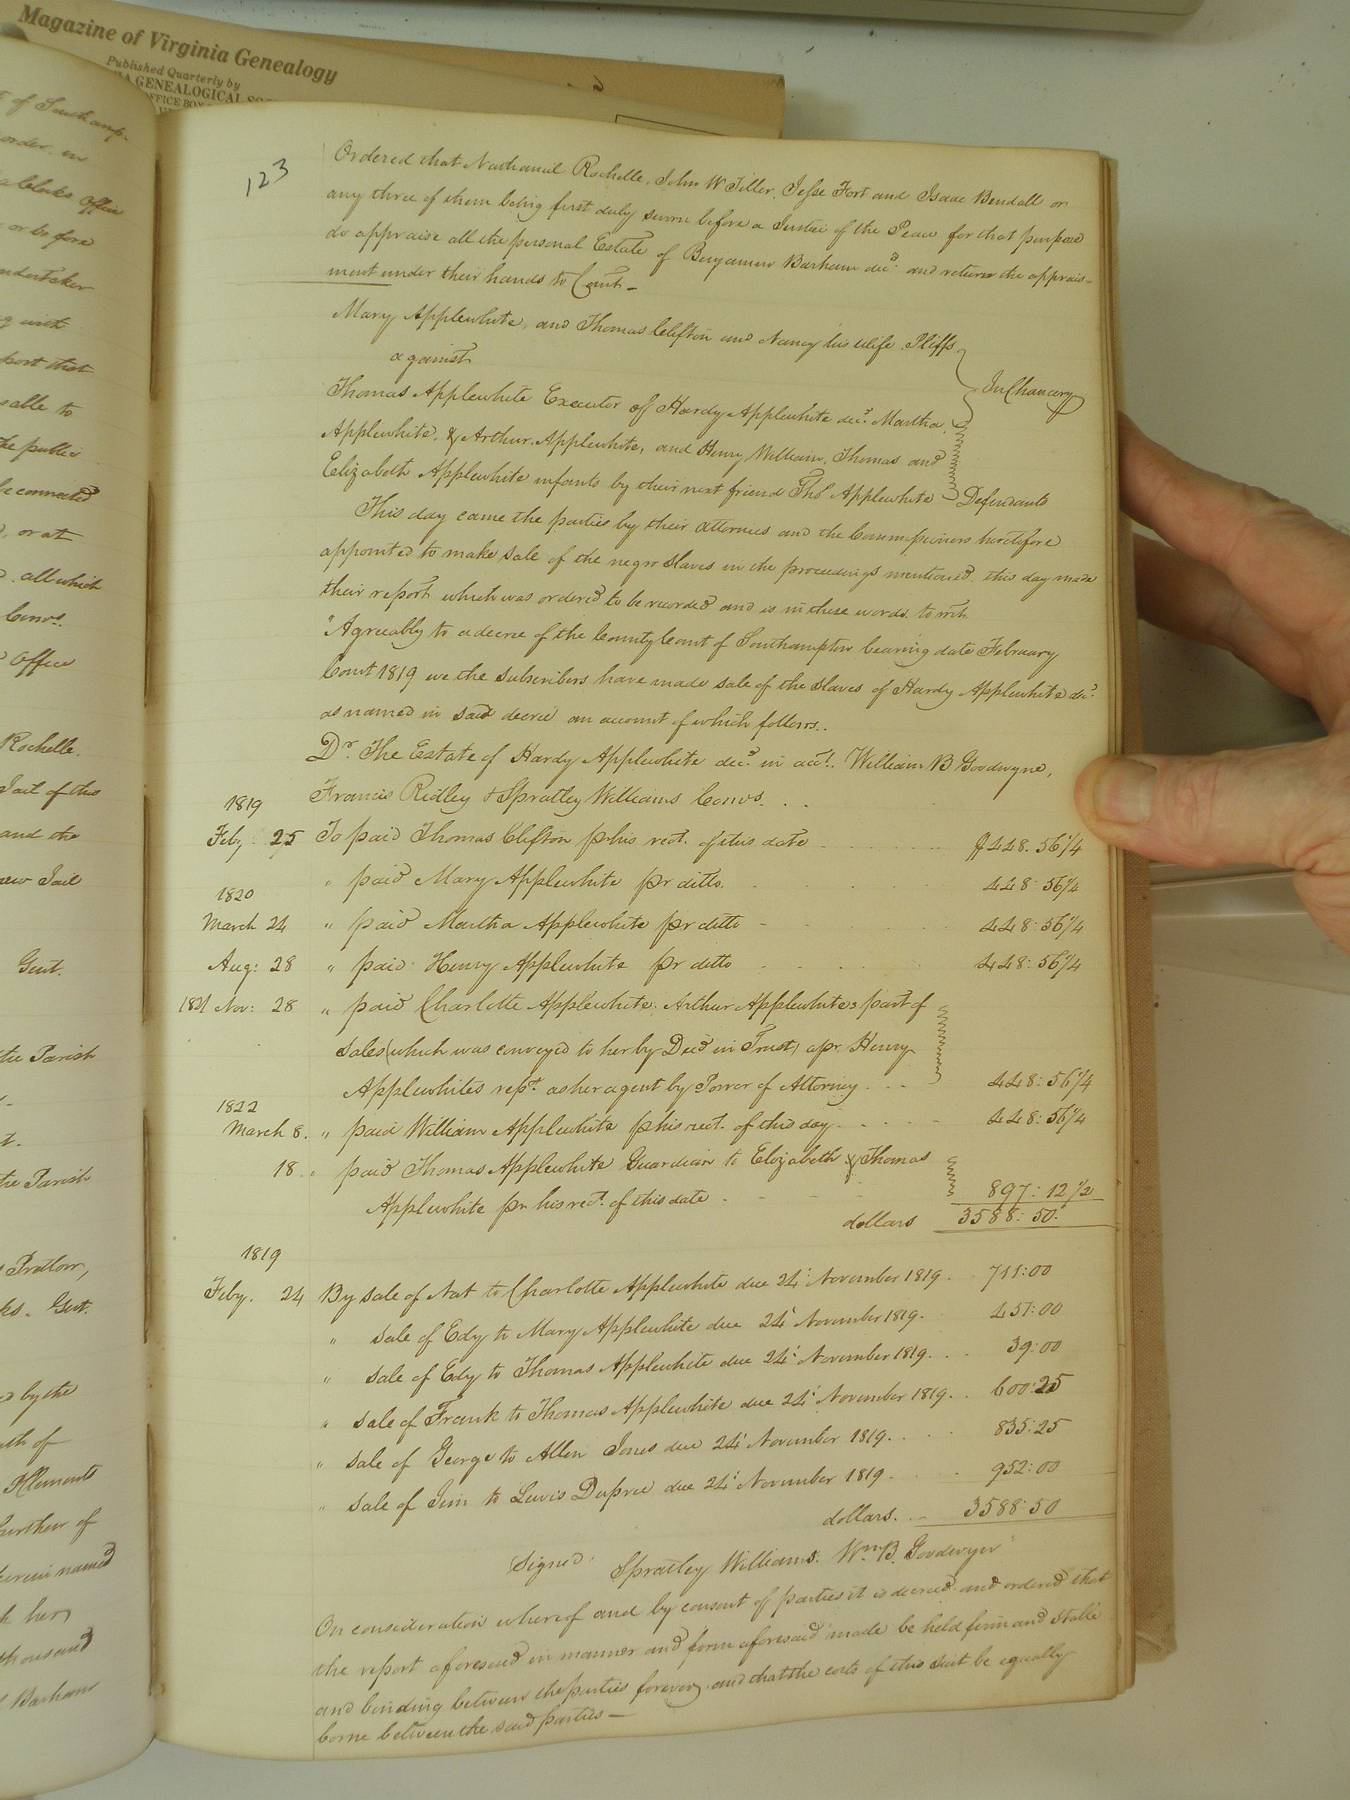 Magazine of Virginia Genealogy
Published Quarterly by
GENEALOGICAL
OFFICE BOX
123
Ordered that Nathaniel Rochelle, John W Tiller, Jesse Fort and Isaac Bendall or
any three of them being first duly sworn before a Justice of the Peace for that purpose
do appraise all the personal Estate of Benjamin Barham decd. and return the apprais-
ment under their hands to Court –
Mary Applewhite, and Thomas Clifton and Nancy his Wife Pltffs
against
In Chancery
Thomas Applewhite Executor of Hardy Applewhite decd. Martha
Applewhite, & Arthur Applewhite, and Henry William, Thomas and
Elizabeth Applewhite infants by their next friend Ths Applewhite Defendants
This day came the parties by their attornies and the Commissioners heretofore
appointed to make sale of the negro slaves in the proceedings mentioned this day made
their report which was ordered to be recorded and is in these words. to wit.
"Agreeably to a decree of the County Court of Southampton bearing date February
Court 1819 we the subscribers have made sale of the slaves of Hardy Applewhite dec.
as named in said decree an account of which follows..
Dr. The Estate of Hardy Applewhite decd. in acct. William B Goodwyne,
Francis Ridley & Spratley Williams Comrs. . .
1819
Feby 25 To paid Thomas Clifton pr his rect. of this date $448.56 1/4
" paid Mary Applewhite pr ditto. 448:56 1/4
1820
March 24 " paid Martha Applewhite pr ditto 448:56 1/4
Aug: 28 " paid Henry Applewhite pr ditto 448:56 1/4
1821 Nov: 28 " paid Charlotte Applewhite, Arthur Applewhites part of
sales (which was conveyed to her by Deed in Trust) apr Henry
Applewhites rept. as her agent by Power of Attorney . . . 448:56 1/4
1822
March 8. " paid William Applewhite p his rect. of this day. 448:56 1/4
18 " paid Thomas Applewhite Guardian to Elizabeth & Thomas
Applewhite pr his rect. of this date 897:12 1/2
dollars 3588:50.
1819
Feby. 24 By sale of Nat to Charlotte Applewhite due 24 November 1819 711:00
" sale of Edy to Mary Applewhite due 24 November 1819. 451:00
" sale of Edy to Thomas Applewhite due 24 November 1819. 39:00
" sale of Frank to Thomas Applewhite due 24 November 1819. 600:25
" sale of George to Allen Jones due 24 November 1819. 835:25
" sale of Jim to Lewis Dupree due 24 November 1819 952:00
dollars. 3588:50
Signed Spratley Williams. Wm. B. Goodwyn"
On consideration whereof and by consent of parties it is decreed and ordered that
the report aforesaid in manner and form aforesaid made be held firm and stable
and binding between the parties forever, and that the costs of this suit be equally
borne between the said parties –